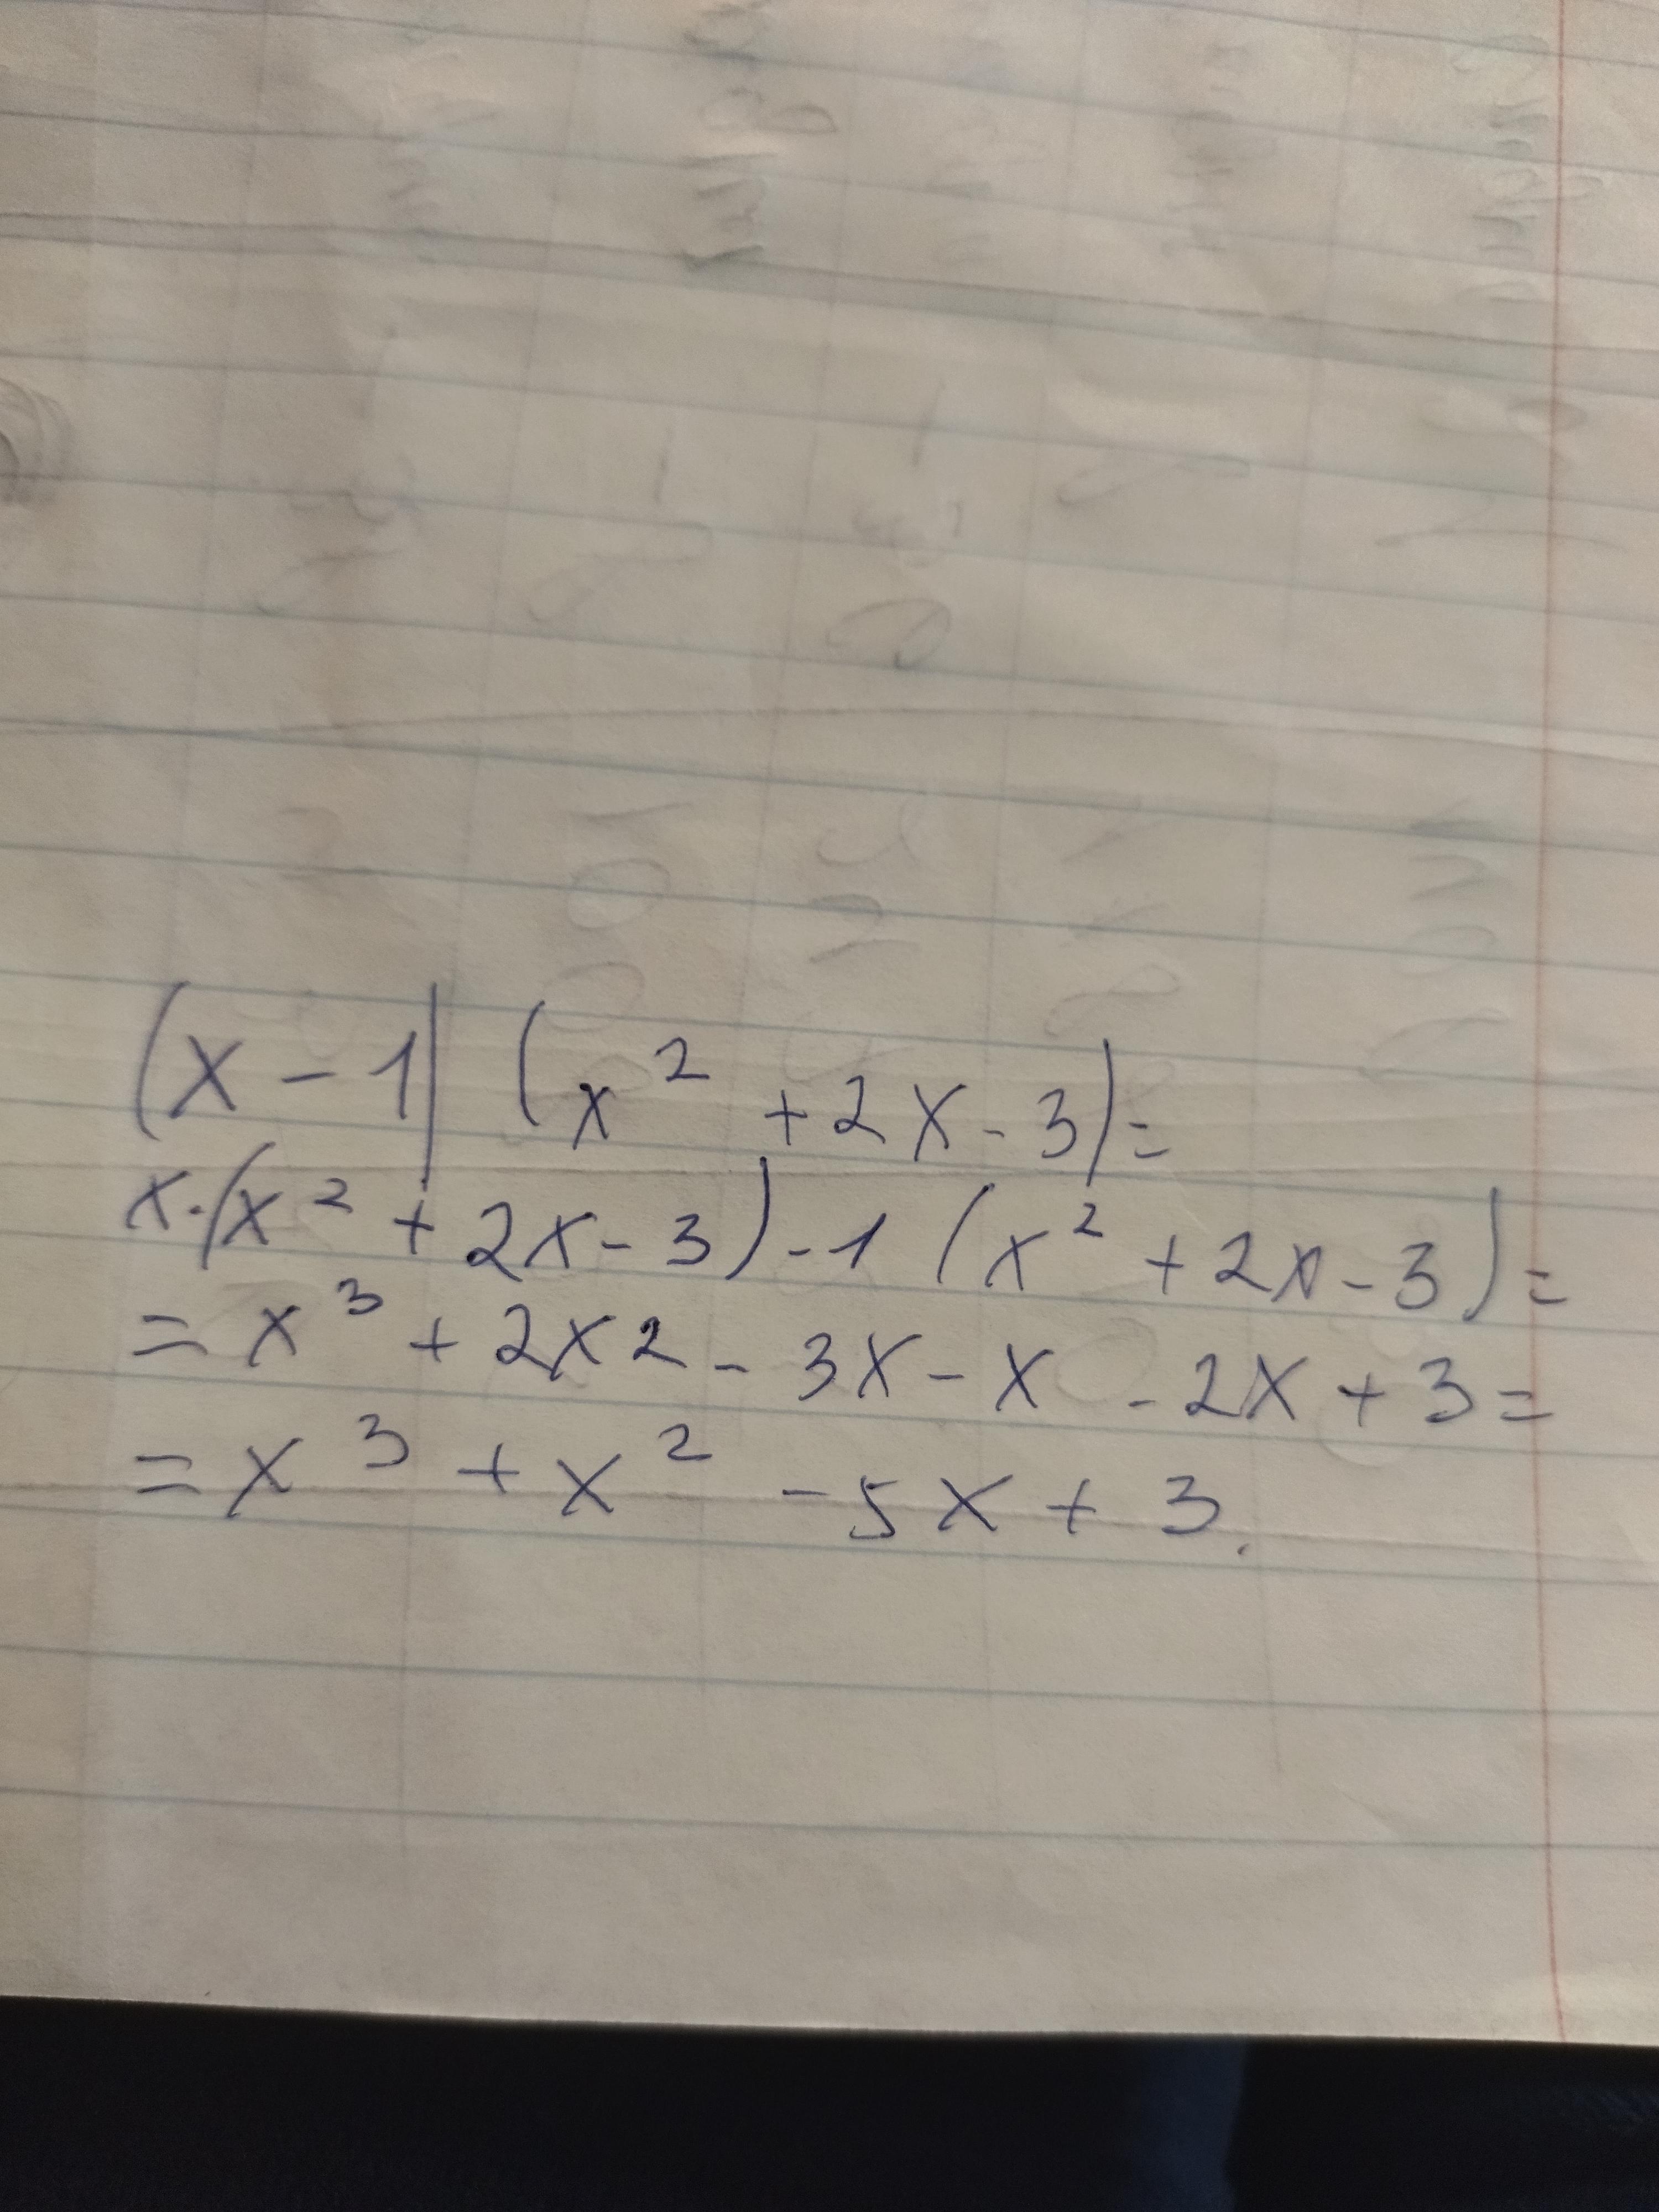 (x - 1) (x² + 2x - 3) =
x·(x² + 2x - 3) - 1 (x² + 2x - 3) =
= x³ + 2x2 - 3x - x - 2x + 3 =
= x³ + x² - 5x + 3.